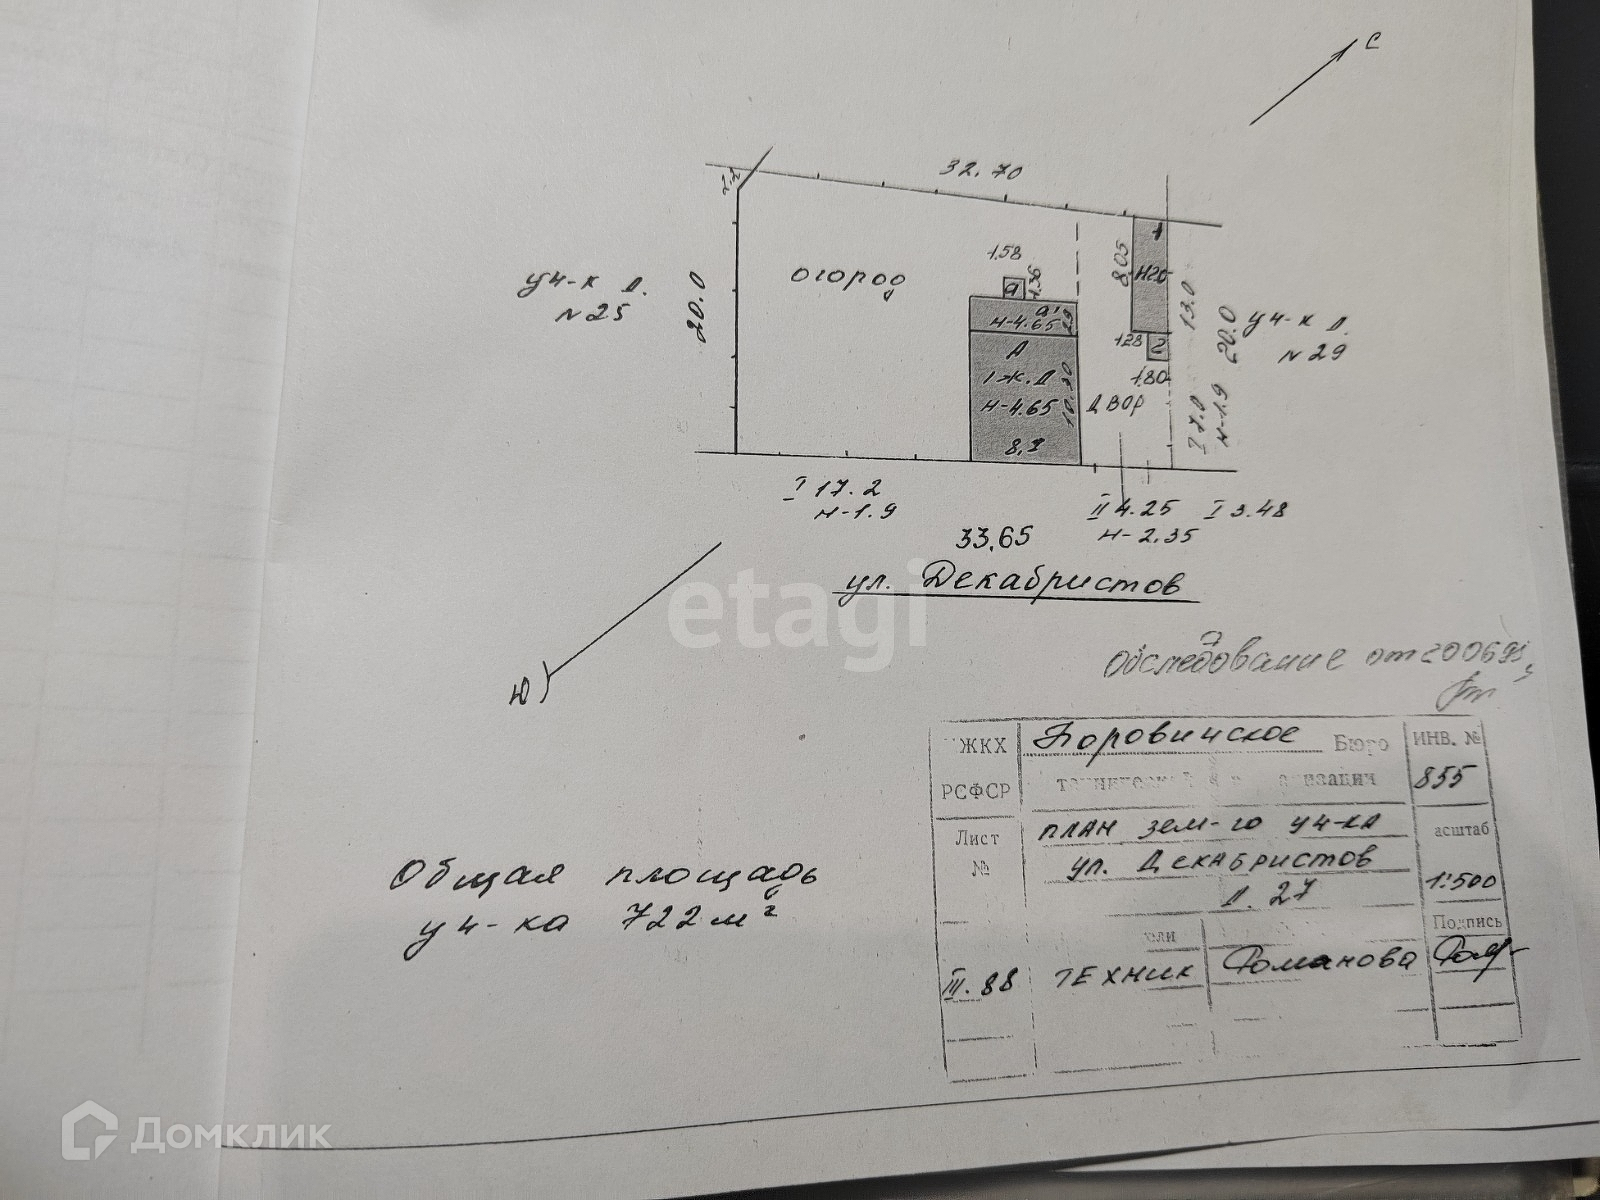 С
32.70
1
огород
1.58
1.36
а
8.05
н2.0
уч-к д.
№25
20.0
а'
н-4.65
13.0
20.0
уч-к д.
№29
А
1.23
2
1ж.д
1.80
н-4.65
10.30
двор
8.3
I 7.0
н-1.9
I 17.2
н-1.9
II 4.25
н-2.35
I 3.48
33,65
ул. Декабристов
etagi
Ю
Обследование от
ЖКХ
РСФСР
Боровичское Бюро
ИНВ. №
855
Лист
№
план зем-го уч-ка
ул. Декабристов
д. 27
асштаб
1:500
Подпись
Общая площадь
уч-ка 722м²
III. 88
техник
Романова
Домклик